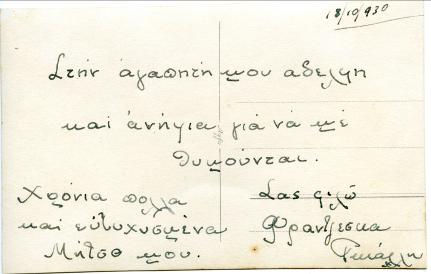 18/10/930
Στήν άγαπητή μου αδελφη
και άνήψια γιά νά με
θυμούνται.
Χρόνια πολλα
και εύτυχυσμένα
Μήτσο μου.
Σας φιλώ
Φραντζεσκα